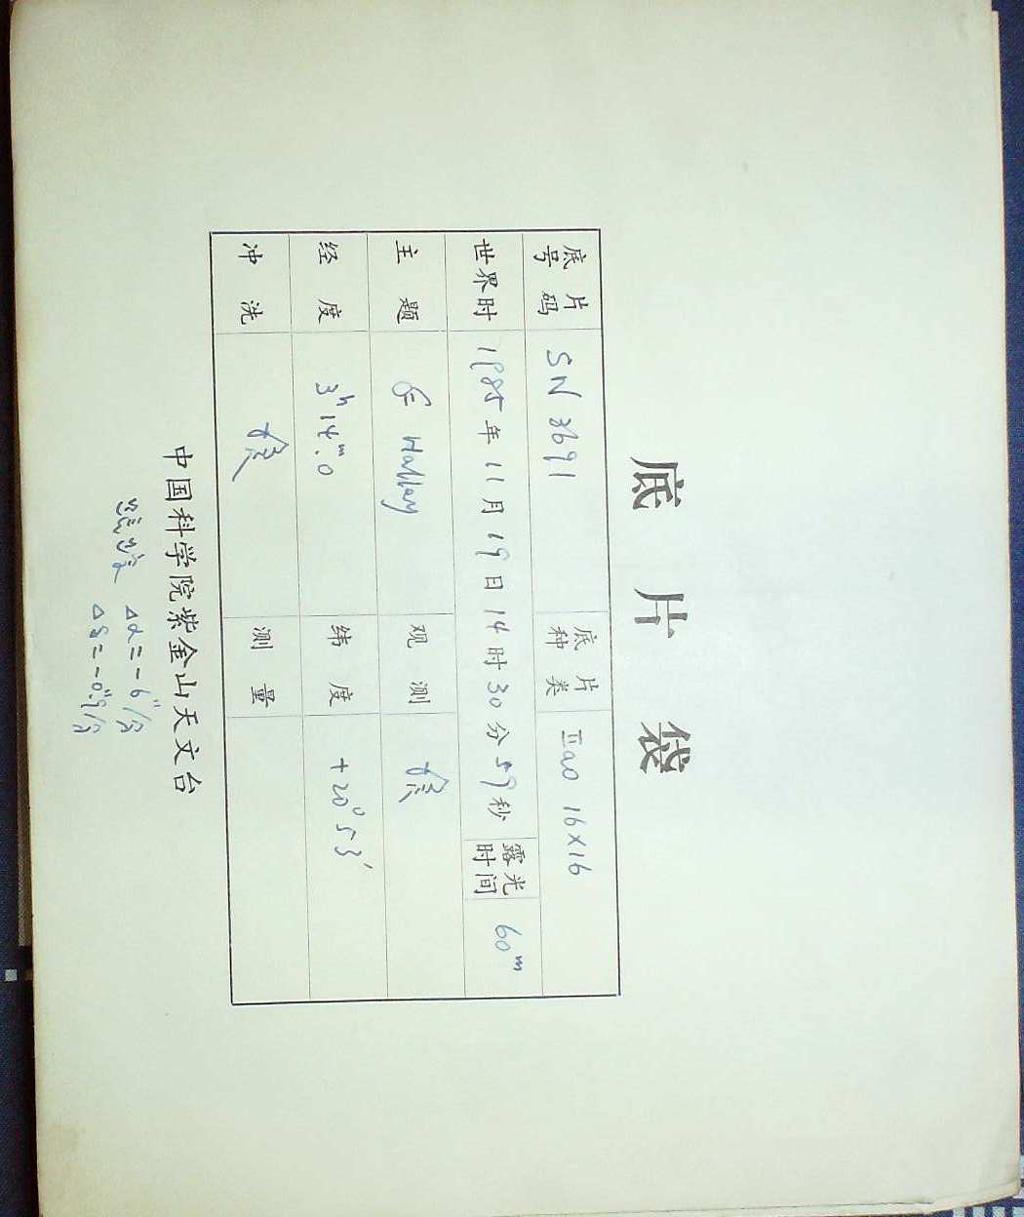 底片袋
底片号码 SN 3691 底片种类 IIaO 16×16
世界时 1985年11月19日14时30分59秒 露光时间 60ᵐ
主题 Halley 观测
经度 3ʰ14ᵐ.0 纬度 +20°53′
冲洗 测量
中国科学院紫金山天文台
Δα=-6″/分
Δδ=-0″.9/分